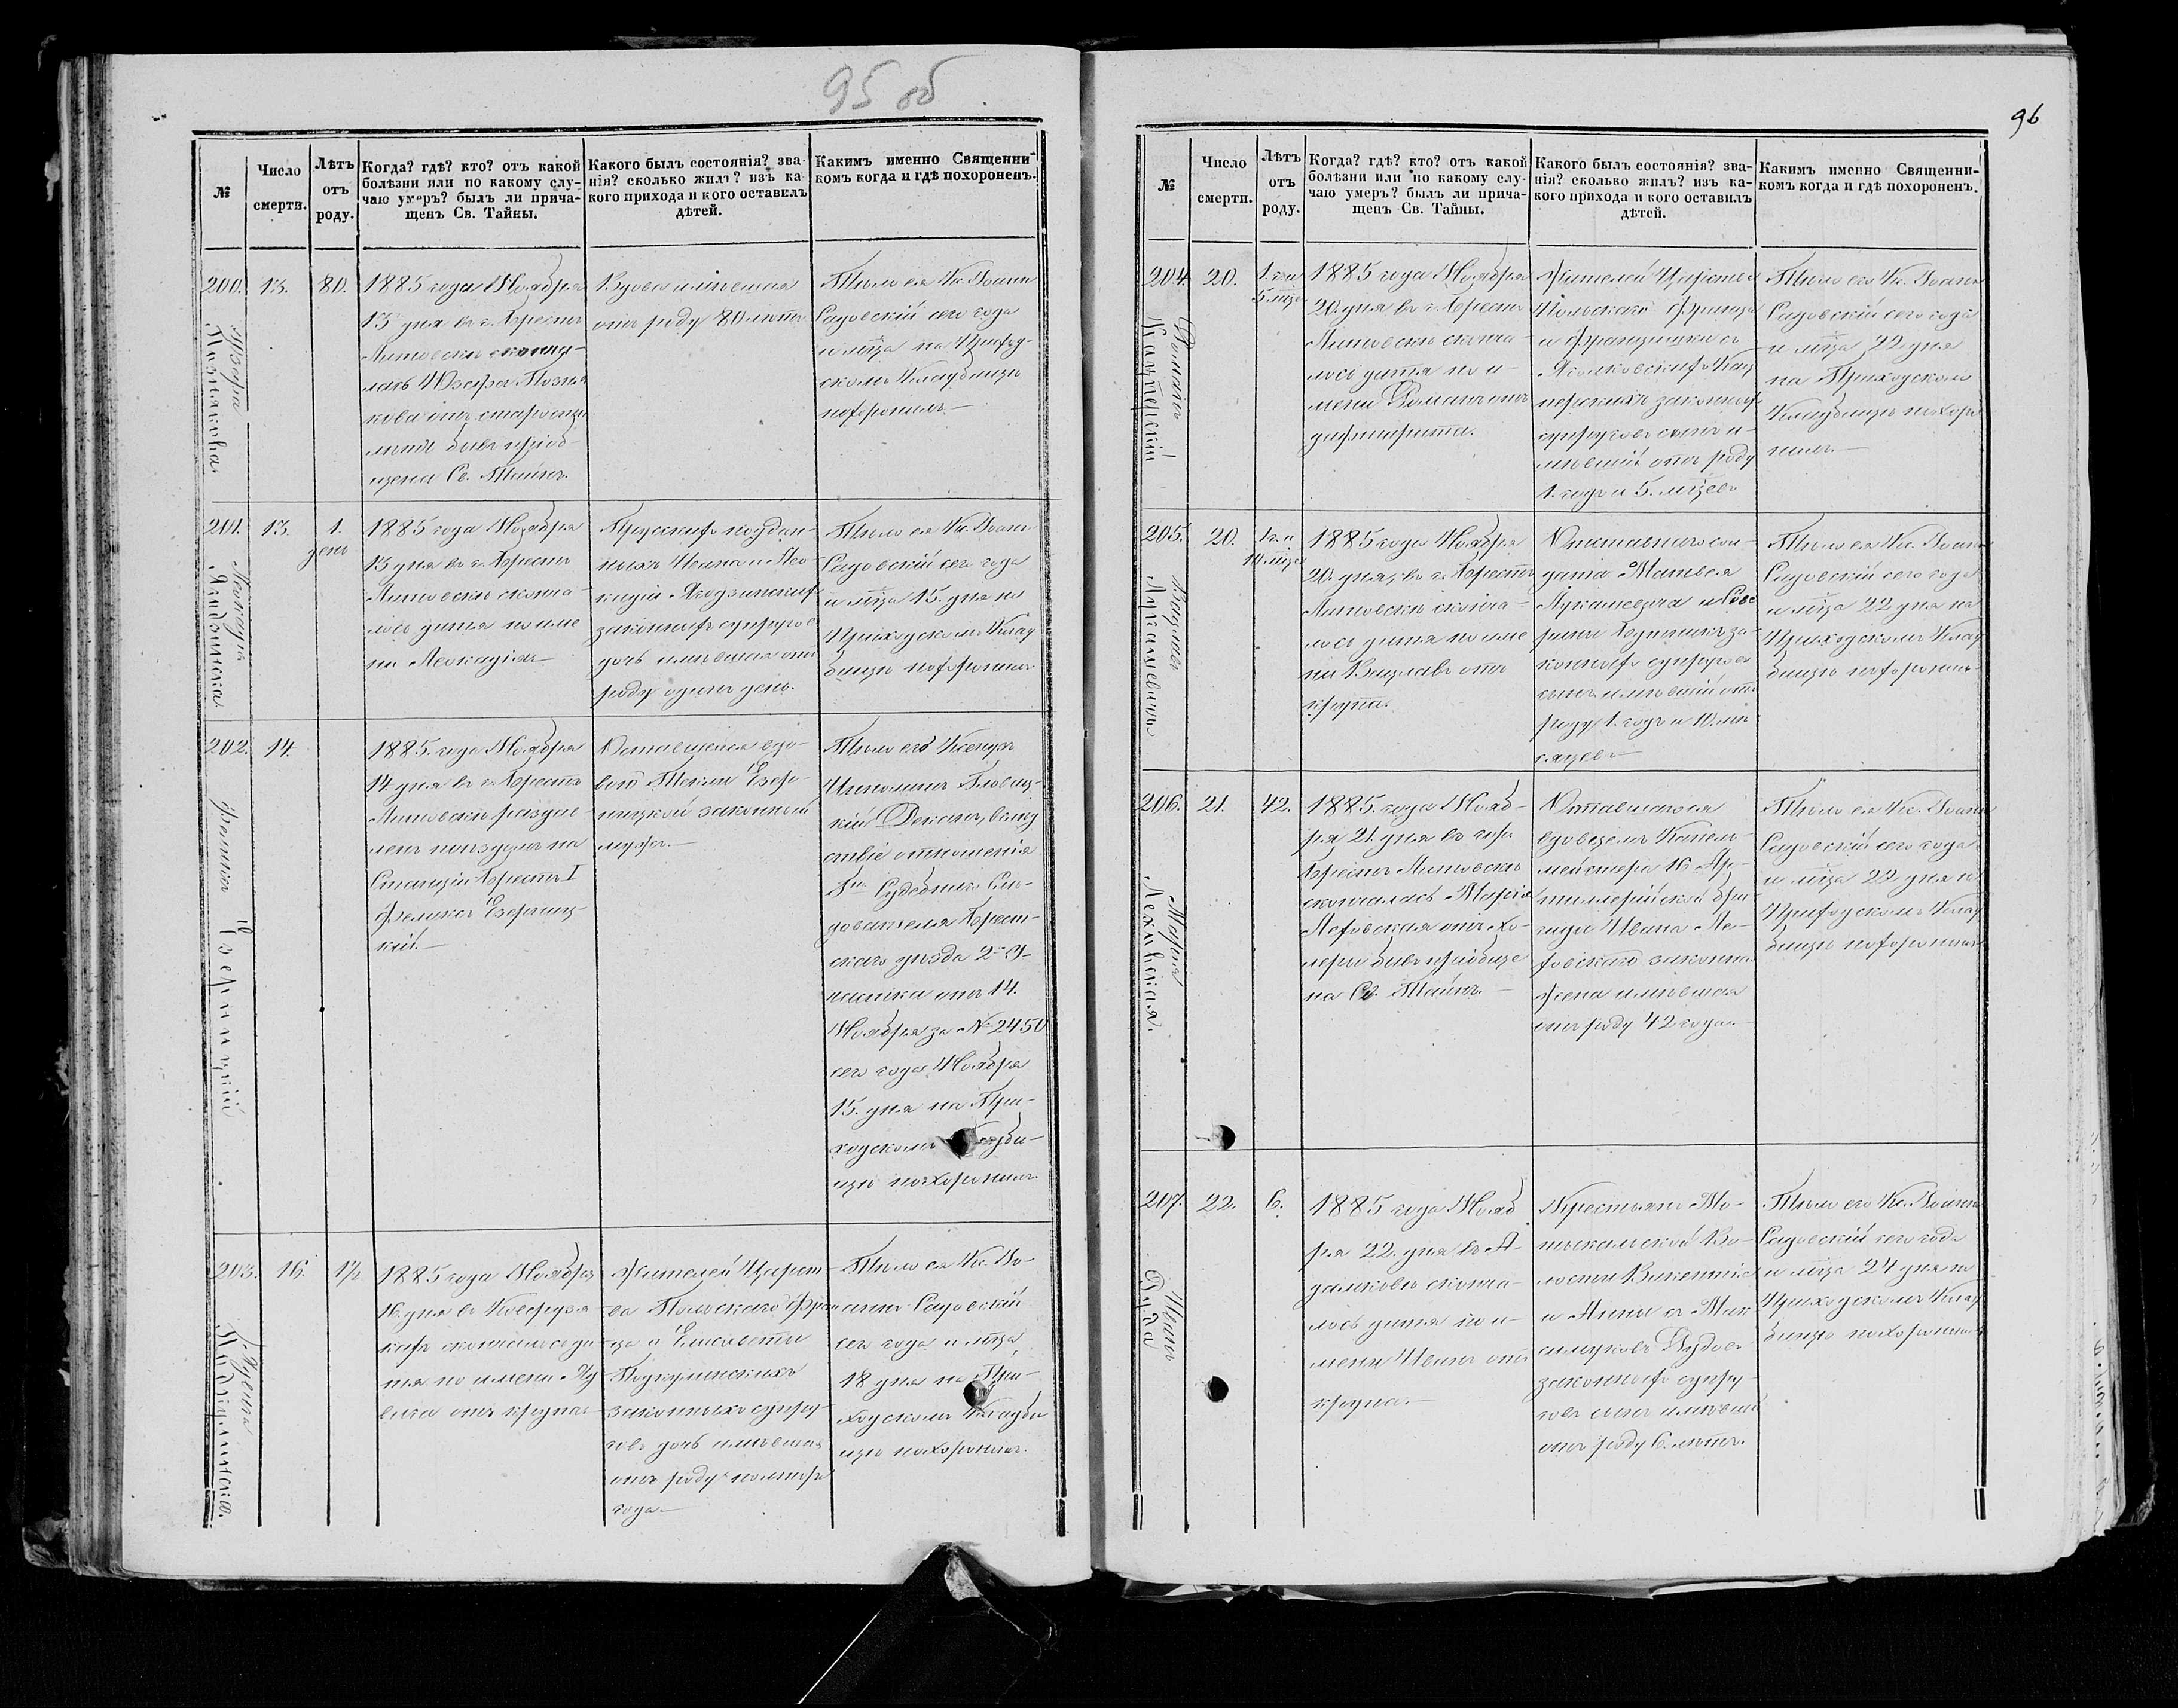 95 об
№
Число
смерти.
Лѣтъ
отъ
роду.
Когда? гдѣ? кто? отъ какой
болѣзни или по какому слу-
чаю умеръ? былъ ли прича-
щенъ Св. Тайны.
Какого былъ состоянія? зва-
нія? сколько жилъ? изъ ка-
кого прихода и кого оставилъ
дѣтей.
Какимъ именно Священни-
комъ когда и гдѣ похороненъ.
200.
Юзефа
Познякова
13.
80.
1885 года Ноября
13 дня въ г. Брестѣ
Литовскѣ сконча-
лась Юзефа Позня
кова отъ старости
бывъ приоб-
щена Св. Тайнъ.
Вдова имѣвшая
отъ роду 80 лѣтъ
Тѣло ея Кс. Іоаннъ
Садовскій сего года
и мѣсяца на Приход-
скомъ Кладбищѣ
похоронилъ.—
201.
Леокадія
13.
1.
день
1885 года Ноября
13 дня въ г. Брестѣ
Литовскѣ сконча-
лось дитя по име
ни Леокадія—
Прусскихъ поддан-
ныхъ Ивана и Лео
кадіи
законныхъ супруговъ
дочь имѣвшая отъ
роду одинъ день.
Тѣло ея Кс. Іоаннъ
Садовскій сего года
и мѣсяца 15. дня на
Приходскомъ Клад
бищѣ похоронилъ
202.
Феликсъ Езерницкій
14.
1885. года Ноября
14 дня въ г. Брестѣ
Литовскѣ раздав-
ленъ поѣздомъ на
Станціи Брестъ I
Феликсъ Езерниц-
кій.—
Оставшейся вдо-
вою Текли Езер-
ницкой законный
мужъ.—
Тѣло его Ксендзъ
Ипполитъ
кій Деканъ, вслѣд
ствіе отношенія
Судебнаго Слѣ-
дователя Брест-
скаго уѣзда 2го У-
частка отъ 14.
Ноября за № 2450
сего года Ноября
15. дня на При-
ходскомъ
щѣ похоронилъ.
203.
Лудвига
Подкулинская.
16.
1½
1885 года Ноября
16. дня въ
кахъ скончалось ди
тя по имени Лу
двига отъ крупа—
Жителей Царст
ва Польскаго Фран
ца и Елисаветы
Подкулинскихъ
законныхъ супру-
говъ дочь имѣвшая
отъ роду полтора
года—
Тѣло ея Кс. Іо-
аннъ Садовскій
сего года и мѣсяца
18 дня на При-
ходскомъ Кладби
щѣ похоронилъ.
96
№
Число
смерти.
Лѣтъ
отъ
роду.
Когда? гдѣ? кто? отъ какой
болѣзни или по какому слу-
чаю умеръ? былъ ли прича-
щенъ Св. Тайны.
Какого былъ состоянія? зва-
нія? сколько жилъ? изъ ка-
кого прихода и кого оставилъ
дѣтей.
Какимъ именно Священни-
комъ когда и гдѣ похороненъ.
204.
Романъ
20.
1. г. и
5 мѣся
1885 года Ноября
20. дня въ г. Брестѣ
Литовскѣ сконча-
лось дитя по и-
мени Романъ отъ
дифтерита.
Жителей Царства
Польскаго Франца
и Францишки съ
законныхъ
супруговъ сынъ и-
мѣвшій отъ роду
1. годъ и 5. мѣсцевъ
Тѣло его Кс. Іоаннъ
Садовскій сего года
и мѣсяца 22 дня
на Приходскомъ
Кладбищѣ похоро
нилъ.—
205.
Вацлавъ
Лукашевичъ
20.
1 г. и
10 мѣся
1885 года Ноября
20 дня, въ г. Брестѣ
Литовскѣ сконча-
лось дитя по име
ни Вацлавъ отъ
крупа.
Отставнаго сол-
дата Матвея
Лукашевича и
за-
конныхъ супруговъ
сынъ имѣвшій отъ
роду 1. годъ и 10. мѣ-
сяцевъ—
Тѣло ея Кс. Іоаннъ
Садовскій сего года
и мѣсяца 22 дня на
Приходскомъ Клад
бищѣ похоронилъ
206.
Марія
Леховская.
21.
42.
1885. года Нояб-
ря 21. дня въ горо
Брестѣ Литовскѣ
скончалась Марія
Леховская отъ хо-
леры бывъ приобще
на Св. Тайнъ.—
Оставшагося
вдовцемъ Капель-
мейстера 16 Ар-
тиллерійской бри
гады Ивана Ле-
ховскаго законная
жена имѣвшая
отъ роду 42 года.—
Тѣло ея Кс. Іоаннъ
Садовскій сего года
и мѣсяца 22 дня на
Приходскомъ Клад
бищѣ похоронилъ
207.
Иванъ
Дуда
22.
6.
1885 года Нояб
ря 22. дня въ А-
дамковѣ сконча-
лось дитя по и-
мени Иванъ отъ
крупа.—
Крестьянъ Мо-
тыкальской Во-
лости Викентія
и Анны съ Мак
симуковъ Дудовъ
законныхъ супру-
говъ сынъ имѣвшій
отъ роду 6. лѣтъ.
Тѣло его Кс. Іоаннъ
Садовскій сего года
и мѣсяца 24 дня на
Приходскомъ Клад
бищѣ похоронилъ